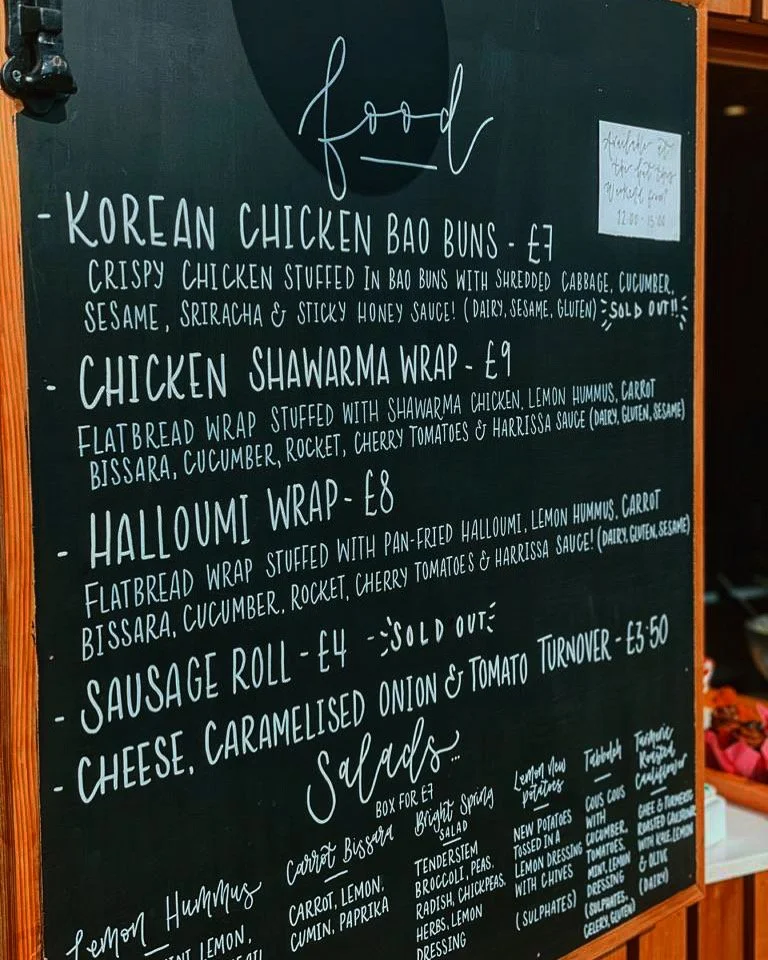 food
Available at
the hut this
Weekend from
12:00 - 15:00
- KOREAN CHICKEN BAO BUNS - £7
CRISPY CHICKEN STUFFED IN BAO BUNS WITH SHREDDED CABBAGE, CUCUMBER,
SESAME, SRIRACHA & STICKY HONEY SAUCE! (DAIRY, SESAME, GLUTEN) SOLD OUT!!
- CHICKEN SHAWARMA WRAP - £9
FLATBREAD WRAP STUFFED WITH SHAWARMA CHICKEN, LEMON HUMMUS, CARROT
BISSARA, CUCUMBER, ROCKET, CHERRY TOMATOES & HARRISSA SAUCE (DAIRY, GLUTEN, SESAME)
- HALLOUMI WRAP - £8
FLATBREAD WRAP STUFFED WITH PAN-FRIED HALLOUMI, LEMON HUMMUS, CARROT
BISSARA, CUCUMBER, ROCKET, CHERRY TOMATOES & HARRISSA SAUCE! (DAIRY, GLUTEN, SESAME)
- SAUSAGE ROLL - £4 - SOLD OUT
- CHEESE, CARAMELISED ONION & TOMATO TURNOVER - £3.50
Salads...
BOX FOR £7
Lemon Hummus
LEMON,
Carrot Bissara
CARROT, LEMON,
CUMIN, PAPRIKA
Bright Spring
SALAD
TENDERSTEM
BROCCOLI, PEAS,
RADISH, CHICKPEAS,
HERBS, LEMON
DRESSING
Lemon New
Potatoes
NEW POTATOES
TOSSED IN A
LEMON DRESSING
WITH CHIVES
(SULPHATES)
Tabbouleh
COUS COUS
WITH
CUCUMBER,
TOMATOES,
MINT, LEMON
DRESSING
(SULPHATES,
CELERY, GLUTEN)
Turmeric
Roasted
Cauliflower
GHEE & TURMERIC
ROASTED CAULIFLOWER
WITH KALE, LEMON
& OLIVE
(DAIRY)